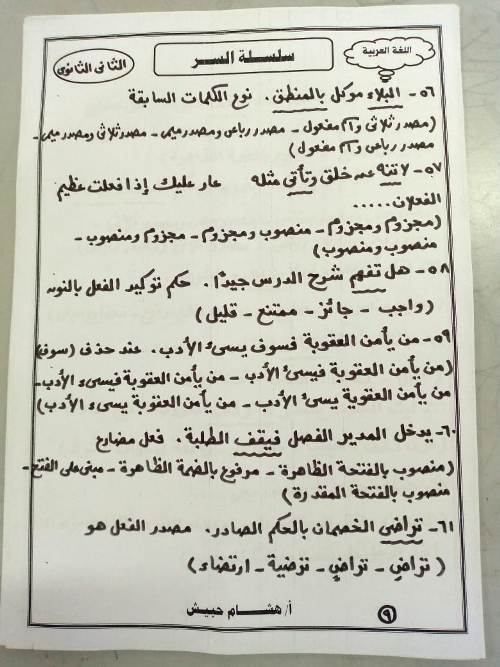 اللغة العربية
سلسلة السر
الثانى الثانوى
٥٦- البلاء موكل بالمنطق. نوع الكلمات السابقة
(مصدر ثلاثى واسم مفعول - مصدر رباعى ومصدر ميمى - مصدر ثلاثى ومصدر ميمى -
مصدر رباعى واسم مفعول)
٥٧- لا تنه عن خلق وتأتى مثله عار عليك إذا فعلت عظيم
الفعلان .....
(مجزوم ومجزوم - منصوب ومجزوم - مجزوم ومنصوب -
منصوب ومنصوب)
٥٨- هل تفهم شرح الدرس جيدًا. حكم توكيد الفعل بالنون
(واجب - جائز - ممتنع - قليل)
٥٩- من يأمن العقوبة فسوف يسىء الأدب. عند حذف (سوف)
(من يأمن العقوبة فيسىء الأدب - من يأمن العقوبة فيسىء الأدب -
من يأمن العقوبة يسىء الأدب - من يأمن العقوبة يسىء الأدب)
٦٠- يدخل المدير الفصل فيقف الطلبة. فعل مضارع
(منصوب بالفتحة الظاهرة - مرفوع بالضمة الظاهرة - مبنى على الفتح -
منصوب بالفتحة المقدرة)
٦١- تراضى الخصمان بالحكم الصادر. مصدر الفعل هو
(تراضِ - تراضٍ - ترضية - ارتضاء)
أ/ هشام حبيش
٩